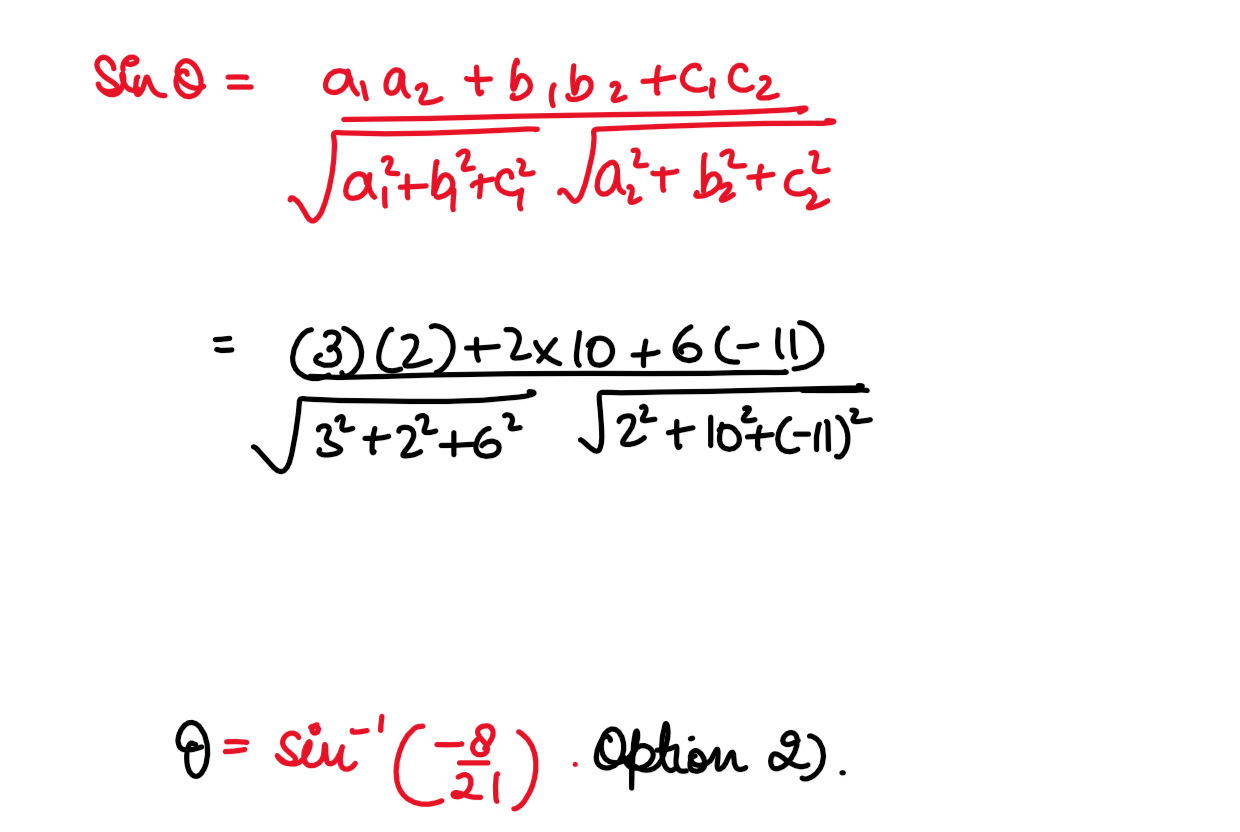 sin θ = a₁a₂ + b₁b₂ + c₁c₂
√a₁²+b₁²+c₁² √a₂²+ b₂²+ c₂²
= (3)(2)+2×10 + 6(-11)
√3²+2²+6² √2²+10²+(-11)²
θ = sin⁻¹(-8/21) . Option 2).